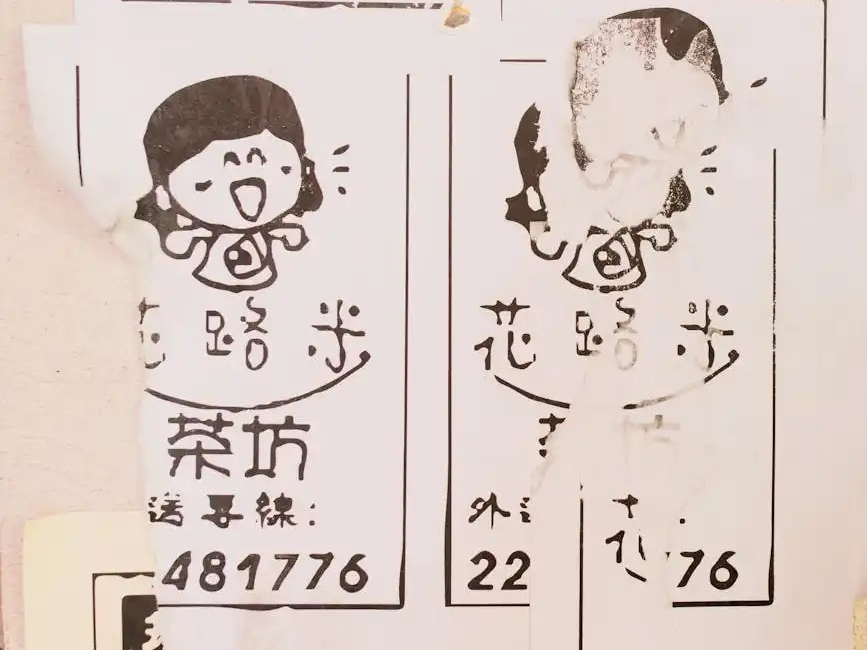 花路米
茶坊
送專線:
481776
花路米
外
22
花
76